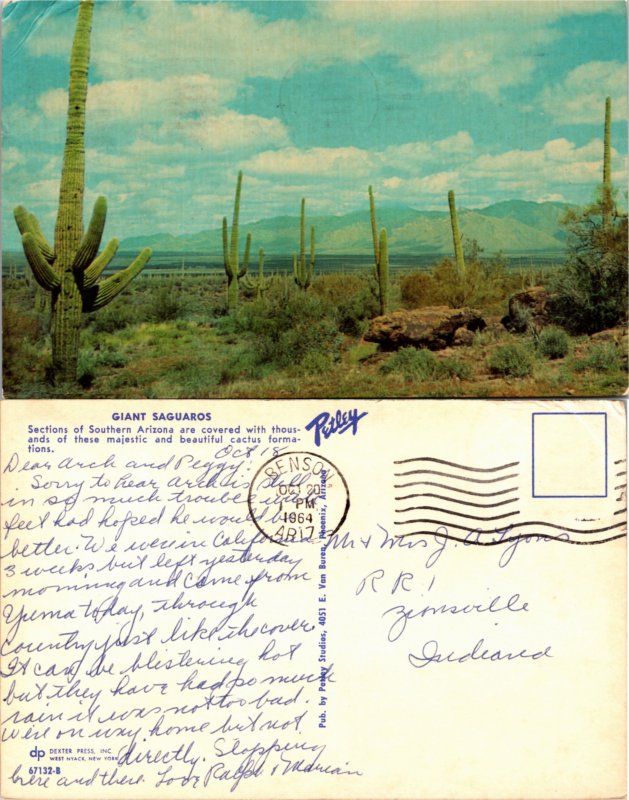 GIANT SAGUAROS
Sections of Southern Arizona are covered with thous-
ands of these majestic and beautiful cactus forma-
tions.
Oct 18
Dear Arch and Peggy:
Sorry to hear Arch is still
in so much trouble with
feet had hoped he would be
better. We were in California
3 weeks but left yesterday
morning and came from
Yuma today, through
country just like the cover.
It can be blistering hot
but they have had so much
rain it was not too bad.
We're on way home but not
directly. Stopping
here and there. Love Ralph & Marian
dp DEXTER PRESS, INC.
WEST NYACK, NEW YORK
67132-B
Petley
Pub. by Petley Studios, 4051 E. Van Buren, Phoenix, Arizona
BENSON
OCT 20
1 PM
1964
ARIZ.
Mr & Mrs J. A. Lyons
R R 1
Zionsville
Indiana